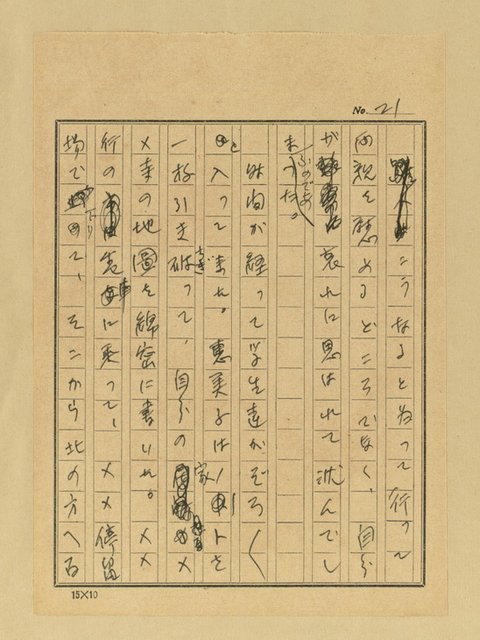 No. 21
こうなると為って行って
両親を慰めるどころでなく、自分
が哀れに思はれて沈んでし
まふのであつた。
時間が経って学生達がぞろ〱
と入って来た。恵美子はノートを
一枚引き破って、自分の家××
×幸の地圖を綿密に書いた。××
行の電車に乗って、××停留
場で下りて、そこから北の方へ百
15×10